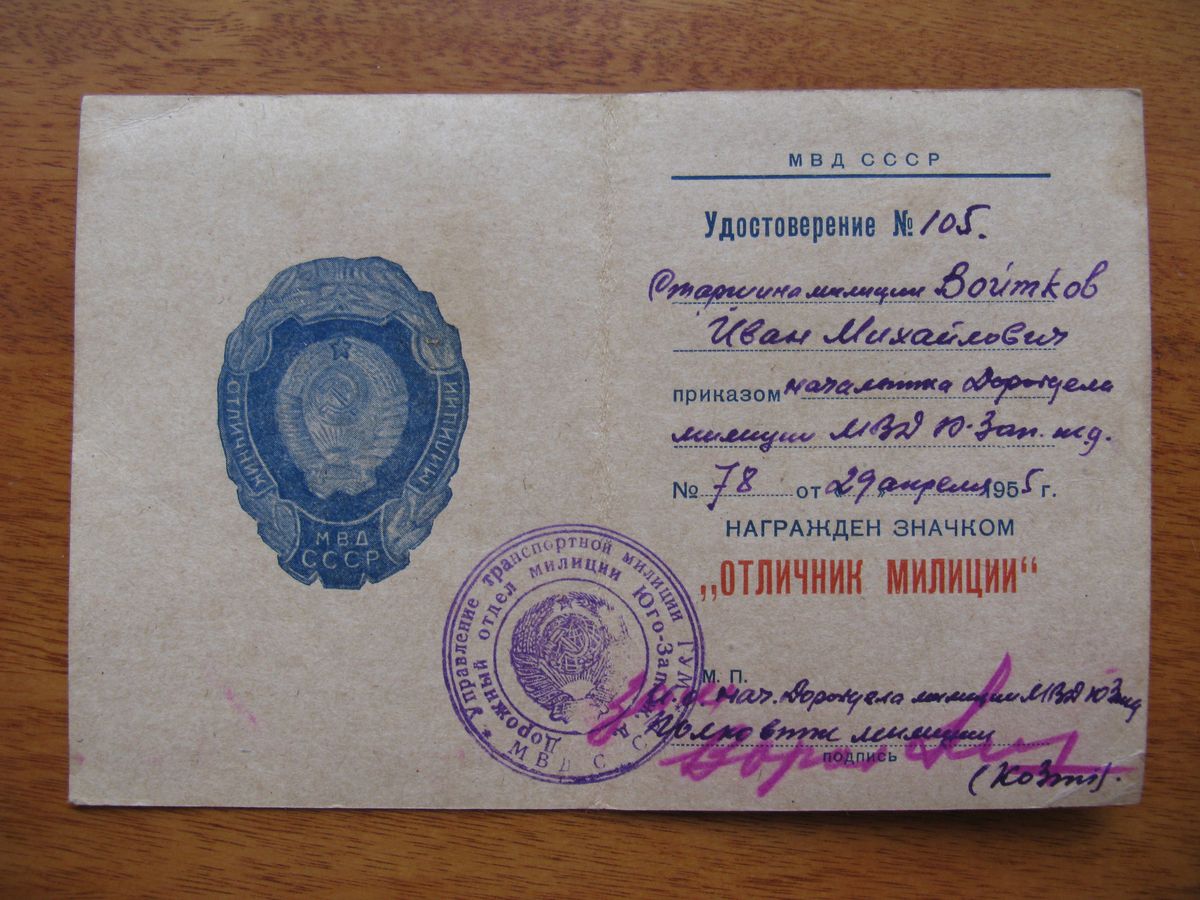 ОТЛИЧНИК МИЛИЦИИ
МВД
СССР
МВД СССР
Удостоверение № 105.
Старшина милиции Войтков
Иван Михайлович
приказом начальника Доротдела
милиции МВД Ю-Зап. ж.д.
№ 78 от 29 апреля 1955 г.
НАГРАЖДЕН ЗНАЧКОМ
„ОТЛИЧНИК МИЛИЦИИ“
* Управление транспортной милиции ГУМ
МВД С
Дорожный отдел милиции Юго-Зап
М. П.
нач. Доротдела милиции МВД ЮЗжд
милиции
подпись